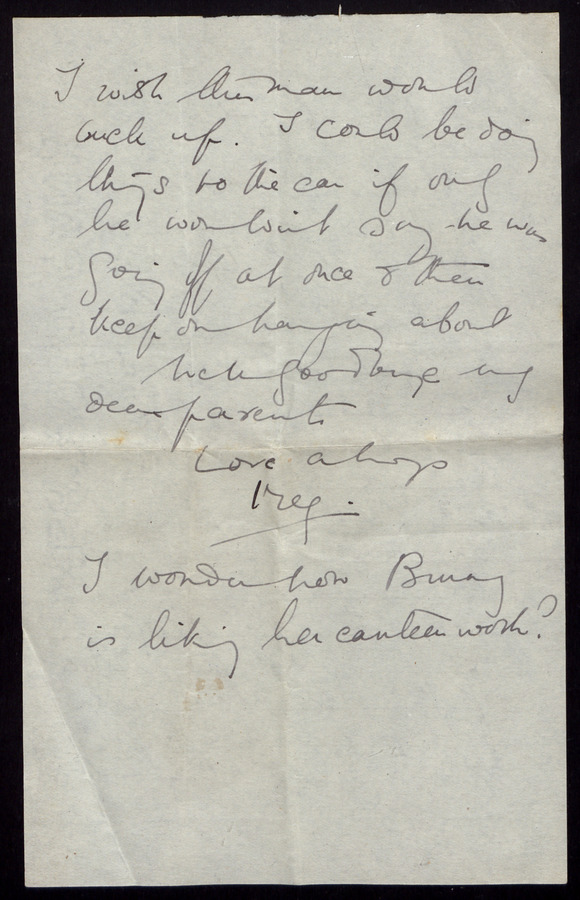 I wish this man would
buck up. I could be doing
things to the car if only
he wouldn't say he was
going off at once & then
keep on hanging about
goodbye my
dear parents
Love always
I wonder how Bunny
is liking her canteen work?